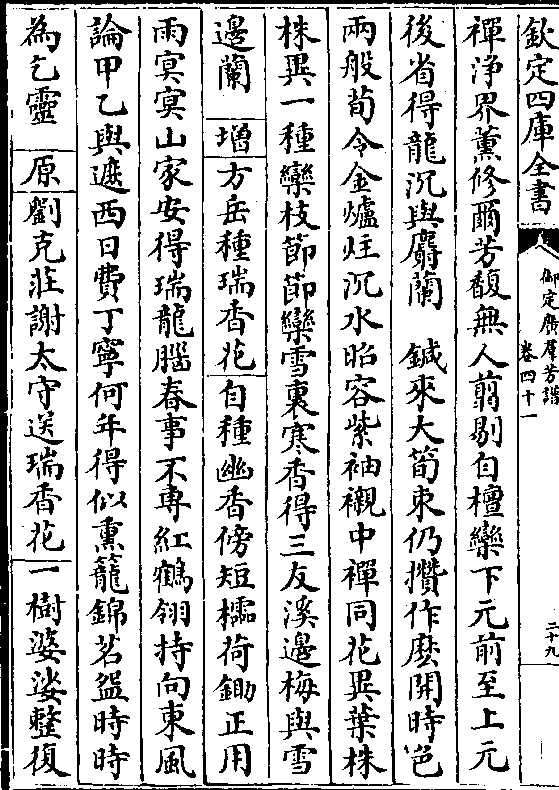 欽定四庫全書
御定廣羣芳譜
卷四十一
二十九
禪淨界薰修爾芳馥無人翦剔自檀欒下元前至上元
後省得龍沉與麝蘭　鍼來大筍束仍攢作麽開時色
兩般荀令金爐炷沉水昭容紫袖襯中襌同花異葉株
株異一種欒枝節節欒雪裏寒香得三友溪邊梅與雪
邊蘭　增方岳種瑞香花自種幽香傍短櫺荷鋤正用
雨冥冥山家安得瑞龍腦春事不專紅鶴翎持向東風
論甲乙與遮西日費丁寧何年得似熏籠錦茗盌時時
為乞靈　原劉克莊謝太守送瑞香花一樹婆娑整復